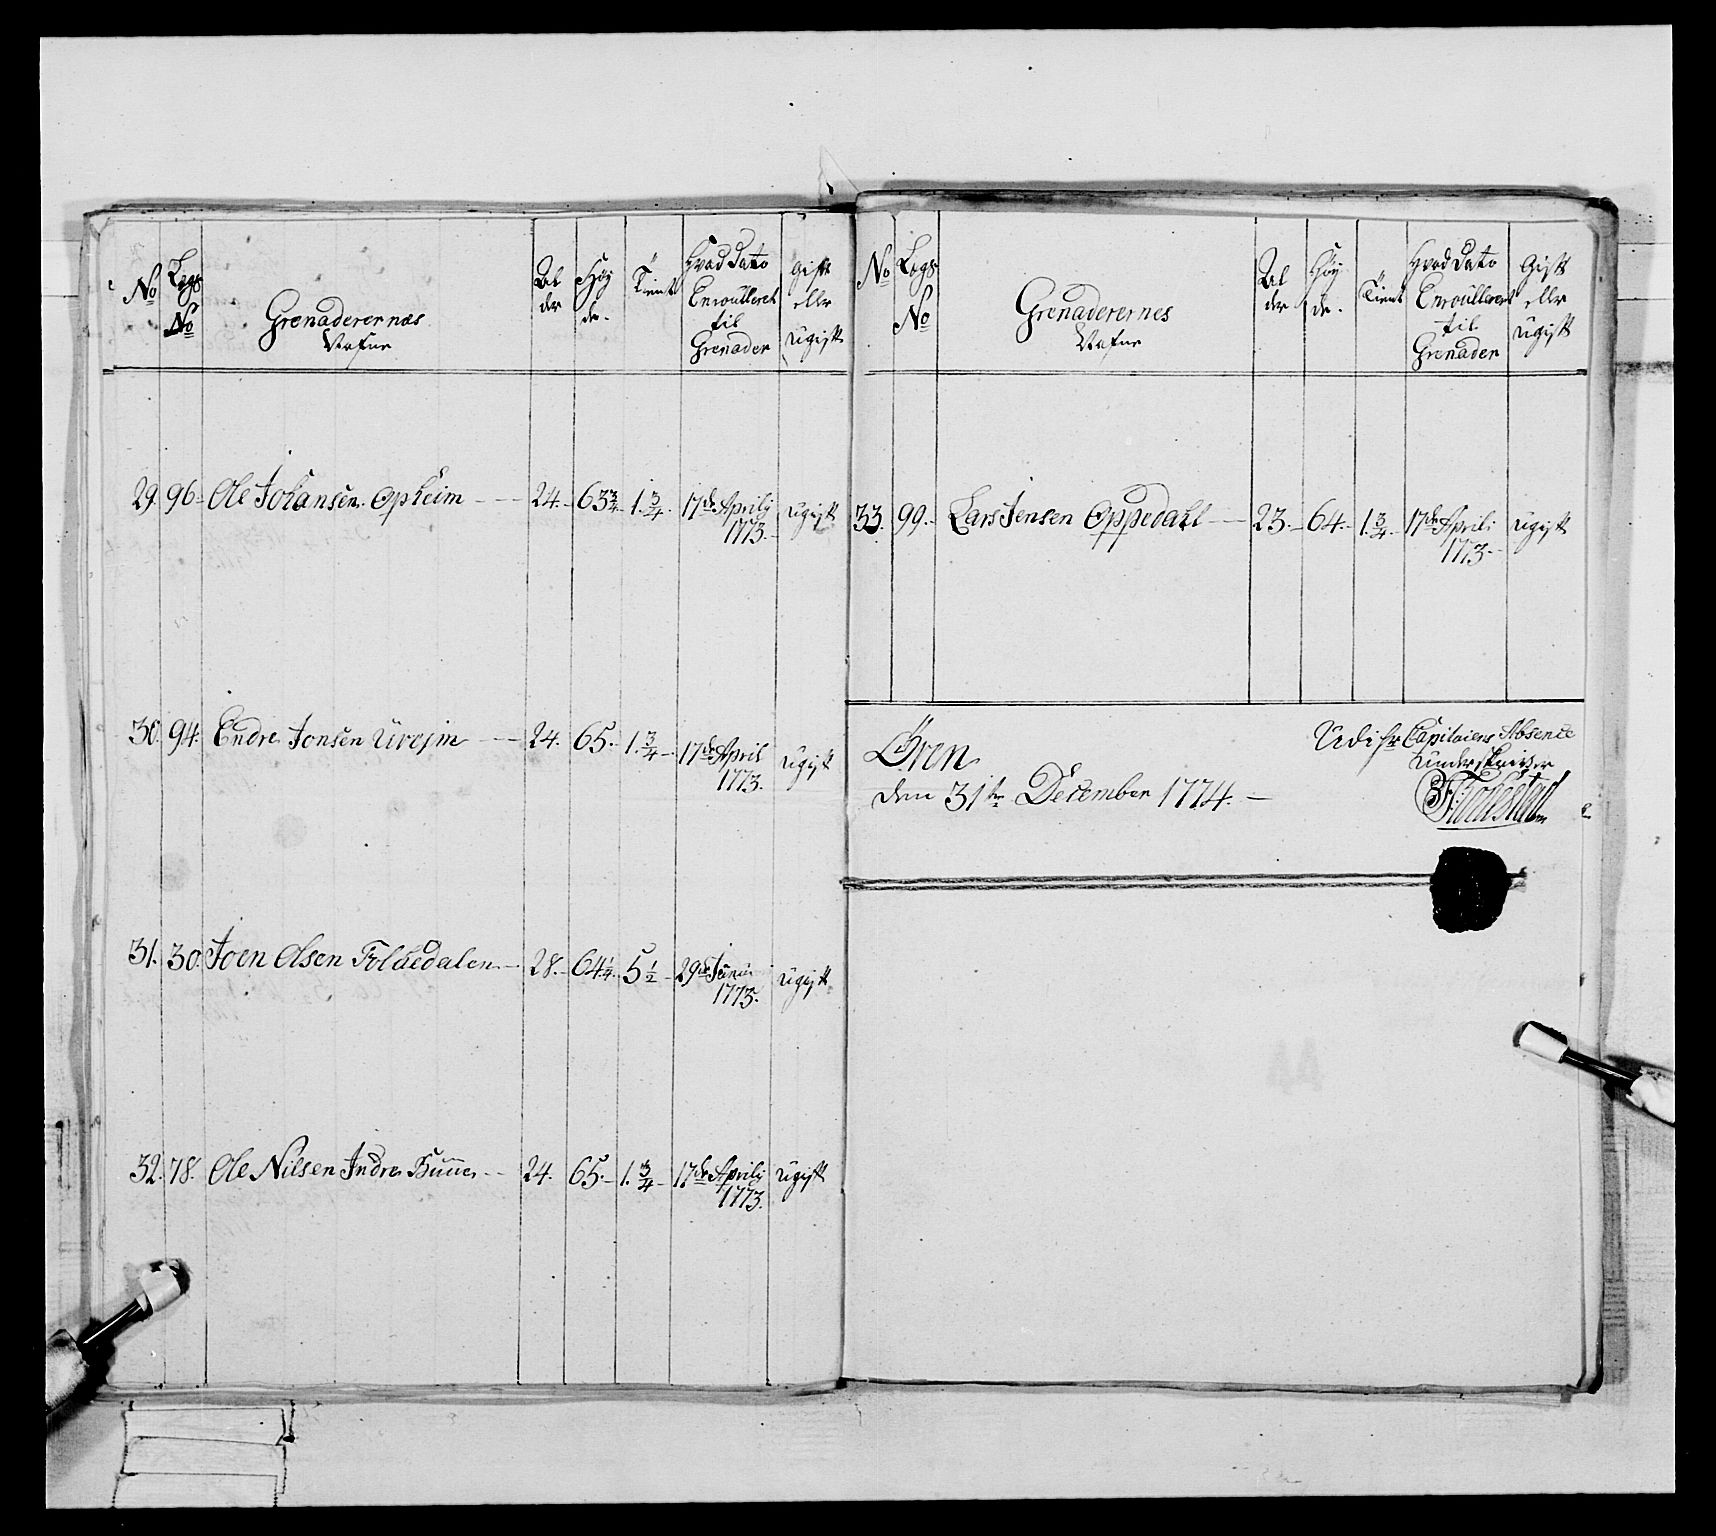 No
Legs
No
Grenaderernes
Nafne
Al
der
Høy
de.
Tient
Hvad Dato
Enroulleret
til
Grenader
Gift
eller
ugift
29. 96. Ole Johansen Opheim 24. 63 3/4. 1. 3/4. 17de Aprily ugift
1773.
30. 94. Endre Jonsen Urejm 24. 65. 1. 3/4 17de April ugift
1773.
31. 30. Joen Olsen Folkedalen 28. 64 1/4. 5 1/2 29de Junii ugift
1773.
32. 78. Ole Nilsen Indre 24. 65. 1. 3/4 17de Aprily ugift
1773.
No
Legs
No
Grenaderernes
Nafne
Al
der
Høy
de.
Tient
Hvad Dato
Enroulleret
til
Grenader
Gift
eller
ugift
33. 99. Lars Jensen Oppedahl 23. 64. 1. 3/4 17de Aprili ugift
1773.
Øren
den 31te December 1774.
Udi hr Capitaiens Absence
underskriver